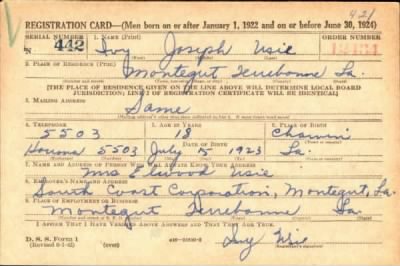 421
REGISTRATION CARD—(Men born on or after January 1, 1922 and on or before June 30, 1924)
SERIAL NUMBER 1. NAME (Print) ORDER NUMBER
N 442 Ivy Joseph Usie
2. PLACE OF RESIDENCE (Print)
Montegut Terrebonne La.
[THE PLACE OF RESIDENCE GIVEN ON THE LINE ABOVE WILL DETERMINE LOCAL BOARD
JURISDICTION; LINE 2 OF REGISTRATION CERTIFICATE WILL BE IDENTICAL]
3. MAILING ADDRESS
Same
4. TELEPHONE 5. AGE IN YEARS
5503 18 Chauvin
DATE OF BIRTH
Houma 5503 July 15 1923 La.
7. NAME AND ADDRESS OF PERSON WHO WILL ALWAYS KNOW YOUR ADDRESS
Mrs Elwood Usie
8. EMPLOYER'S NAME AND ADDRESS
South Coast Corporation, Montegut, La.
9. PLACE OF EMPLOYMENT OR BUSINESS
Montegut Terrebonne La.
I AFFIRM THAT I HAVE VERIFIED ABOVE ANSWERS AND THAT THEY ARE TRUE.
D. S. S. FORM 1
(Revised 6-9-42) (over)
Ivy Usie